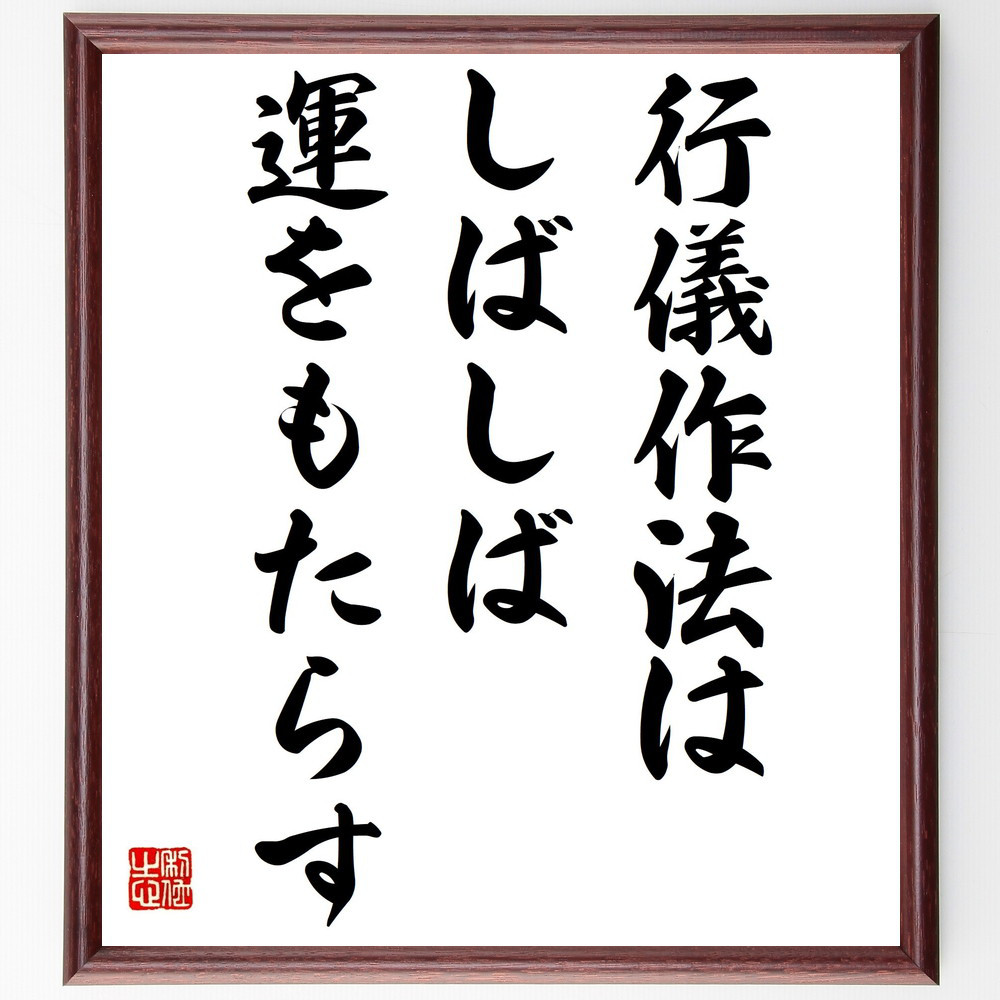 行儀作法は
しばしば
運をもたらす